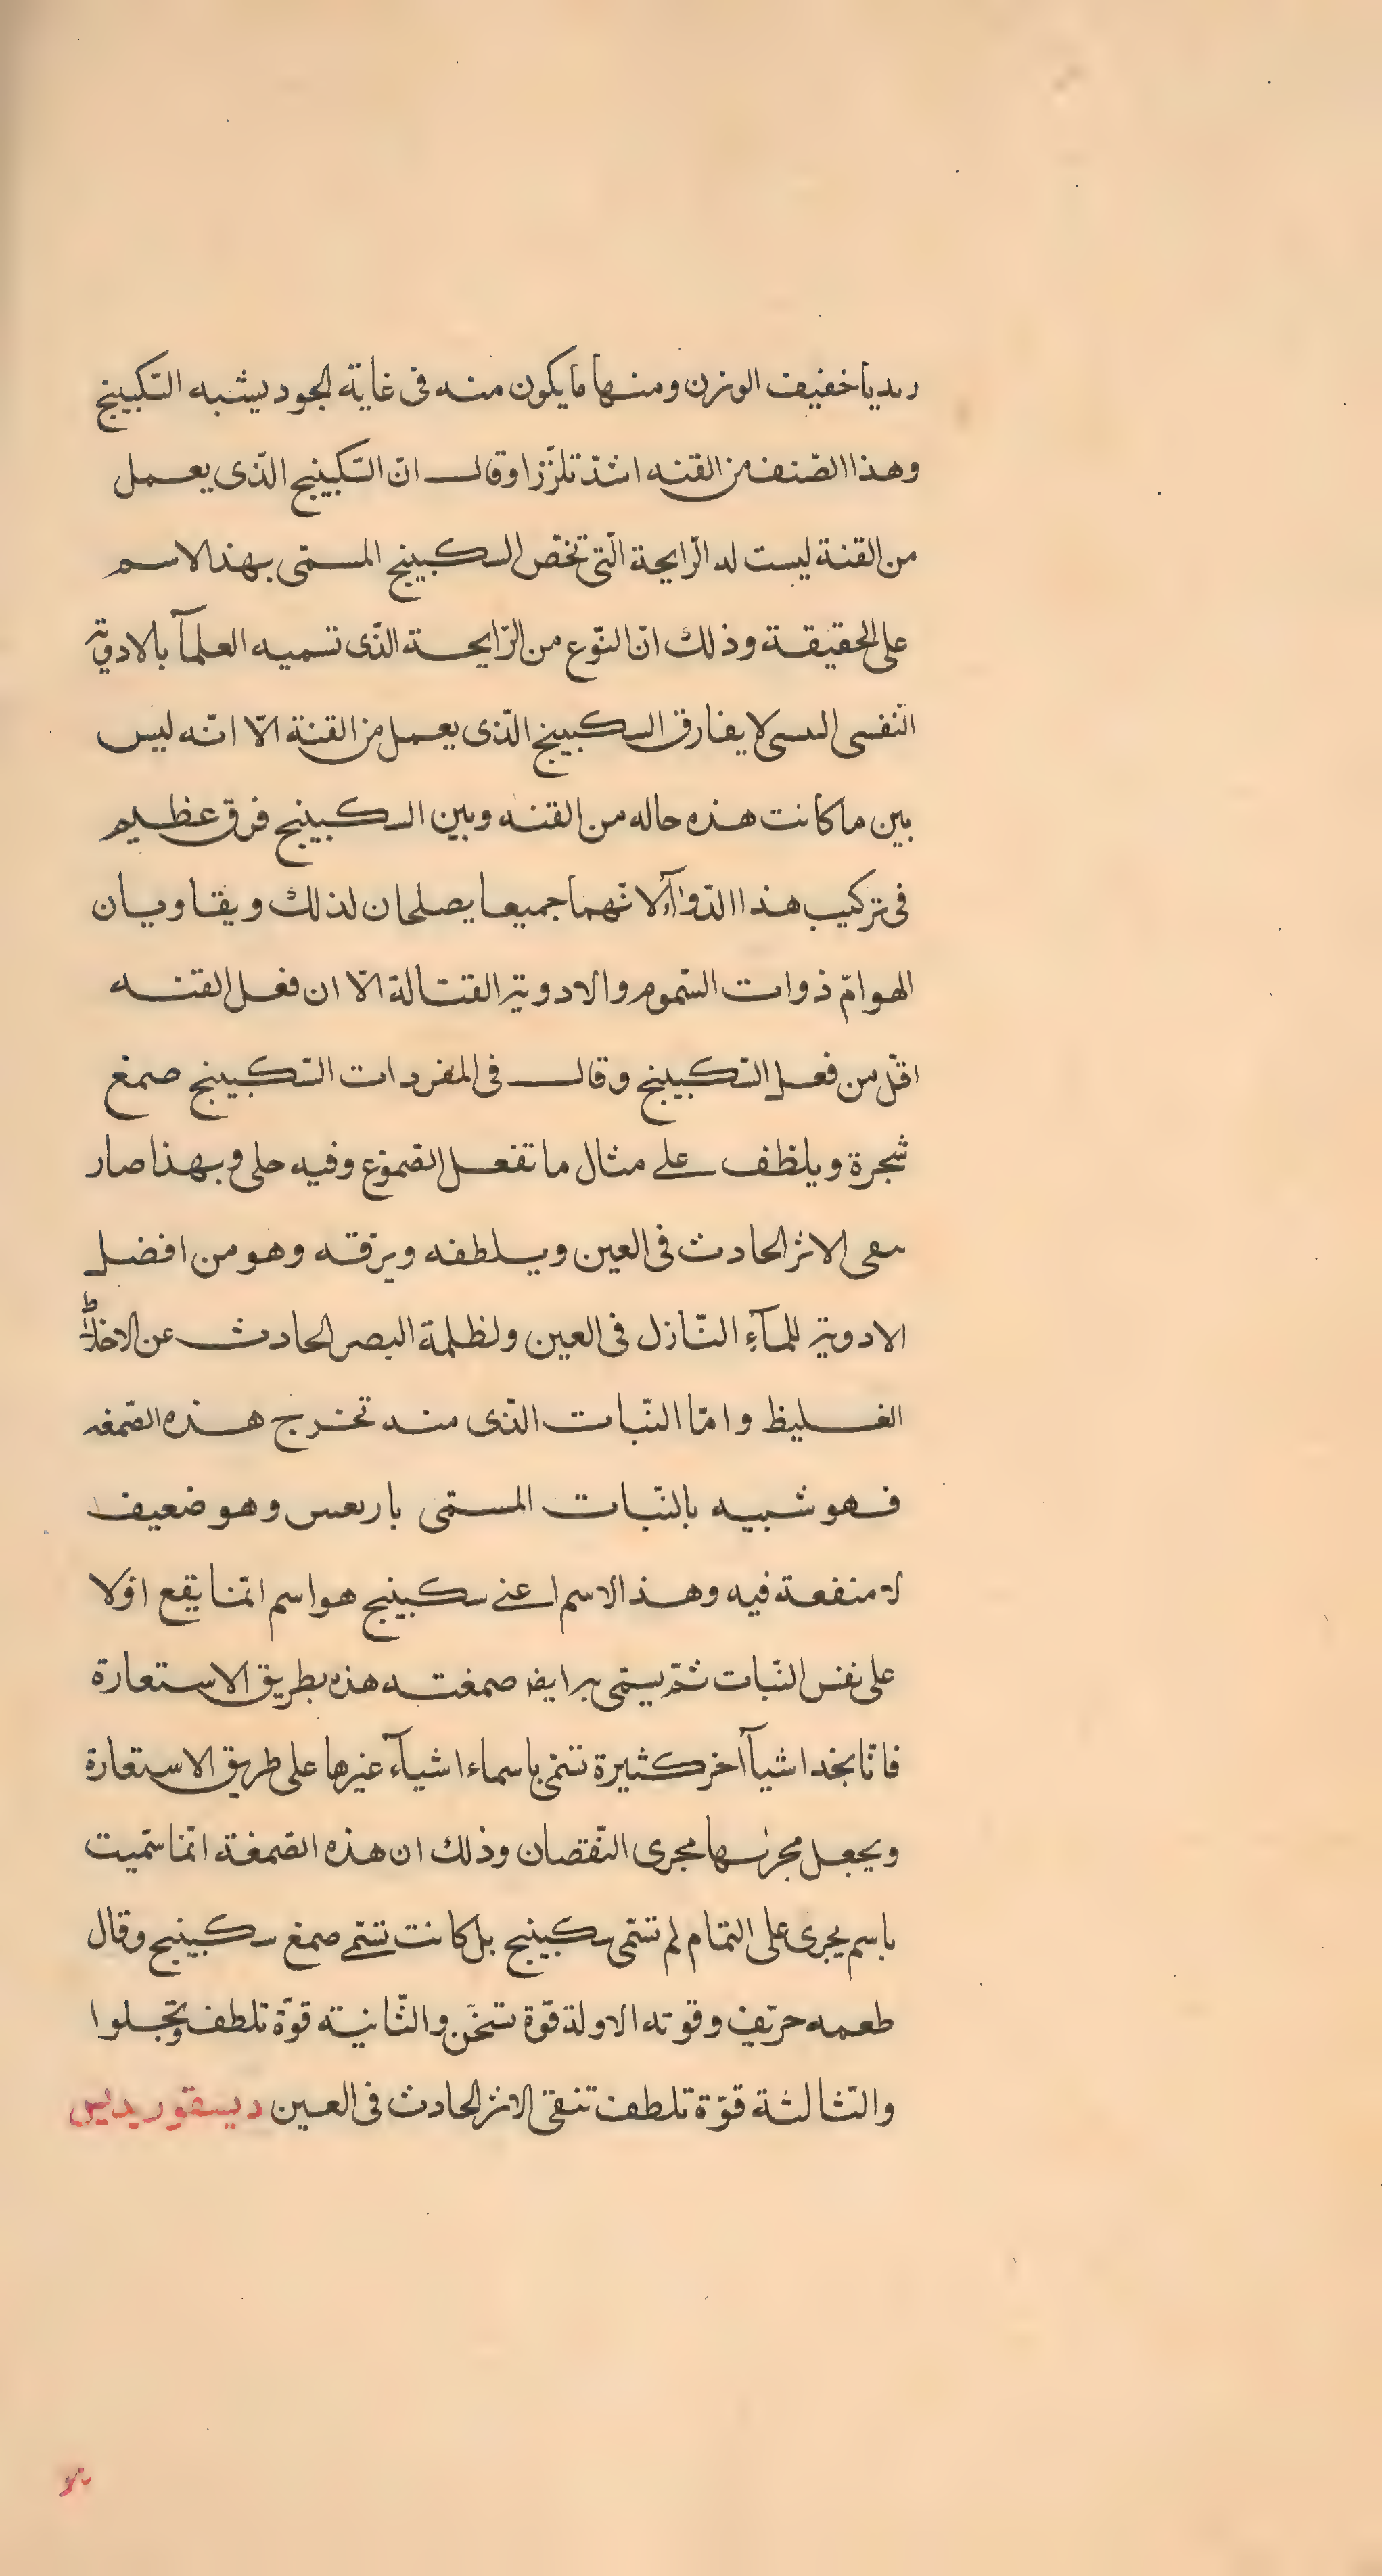 ردىا خفيف الوزن ومنها ما يكون منه فى غاية الجود يشبه السّكبينج
وهذا الصّنف من القنه اشدّ تلزّزا وقال انّ السّكبينج الّذى يعمل
من القنة ليست له الرّايحة الّتى تخصّ السكبينج المسمّى بهذا الاسم
على الحقيقة وذلك انّ النّوع من الرّايحة الذّى تسميه العلمآ بالادوية
النّفسى لا يفارق السكبينج الذّى يعمل من القنة الّا انّه ليس
بين ما كانت هذه حاله من القنه وبين السكبينج فرق عظيم
فى تركيب هذا الدّوآء لانّهما جميعا يصلحان لذلك ويقاويان
الهوامّ ذوات السّموم والادوية القتالة الّا ان فعل القنه
اقلّ من فعل السّكبينج وقال فى المفردات السّكبينج صمغ
شجرة ويلطف على مثال ما تفعل الصّموغ وفيه حلى وبهذا صار
ىىقى الاثر الحادث فى العين ويلطفه ويرّقه وهو من افضل
الادوية للمآء النّازل فى العين ولظلمة البصر الحادث عن الاخلاط
الغليظ وامّا النّبات الذّى منه تخرج هذه الصّمغه
فهو شبيه بالنّبات المسمّى وهو ضعيف
لا منفعة فيه وهذا الاسم اعنى سكبينج هو اسم انّما يقع اوّلا
على نفس النّبات ثمّ يسمّى به ايضا صمغته هذه بطريق الاستعارة
فانّا نجد اشيآ اخر كثيرة تسمّى باسماء اشيآء غيرها على طريق الاستعارة
ويجعل مجرىها مجرى النّقصان وذلك ان هذه الصّمغة انّما سمّيت
باسم يجرى على التمام لم تسمّى سكبينج بل كانت تسمّى صمغ سكبينج وقال
طعمه حرّيف وقوته الاولة قوّة تسخّن والثّانية قوّة تلطف وتجلوا
والثّالثة قوّة تلطف تنقى الاثر الحادث فى العين ديسقوريديس